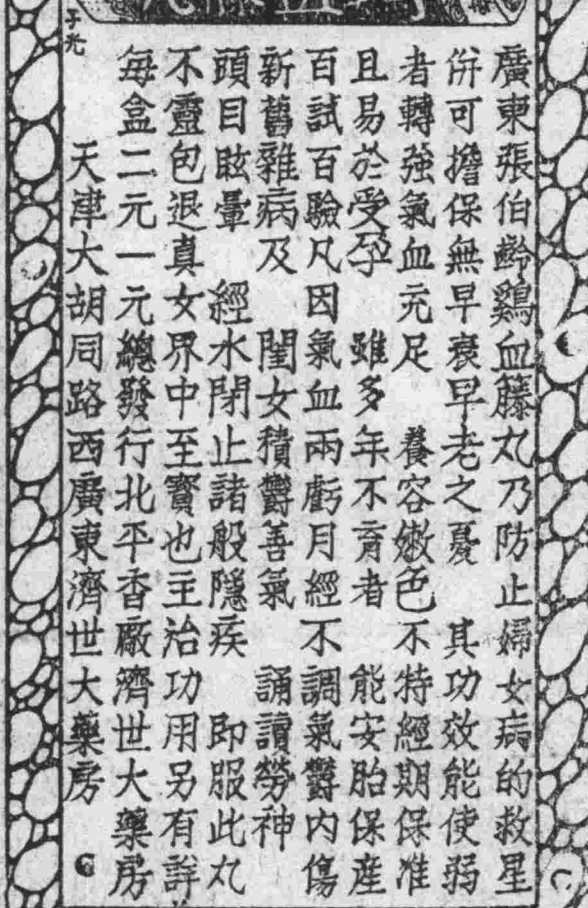 廣東張伯齡鷄血籐丸乃防止婦女病的救星
併可擔保無早衰早老之憂　其功效能使弱
者轉強氣血充足　養容嫩色　不特經期保准
且易於受孕　雖多年不育者　能安胎保產
百試百驗凡因氣血兩虧月經不調氣鬱內傷
新舊雜病及　閨女積鬱善氣　誦讀勞神
頭目眩暈　經水閉止諸般隱疾　即服此丸
不靈包退真女界中至寳也主治功用另有詳
每盒二元一元總發行北平香廠濟世大藥房
天津大胡同路西廣東濟世大藥房